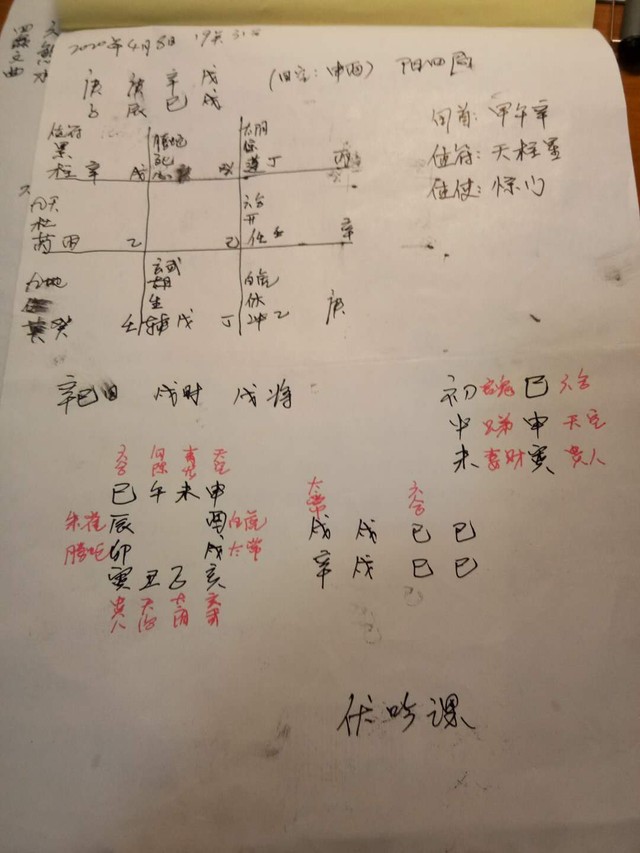 2020年4月8日 19点31分
庚 庚 辛 戊
子 辰 巳 戌
(旬空:申酉) 阳四局
旬首:甲午辛
值符:天柱星
值使:惊门
值符 腾蛇 太阴
柱 辛 丁
九天 六合
杜 开
乙 己 任 辛
九地 玄武 白虎
生 休
英 癸 壬 辅 戊 丁 冲 乙 庚
辛巳日 戌时 戌将
初 巳 六合
中 兄弟 申 天空
末 妻财 寅 贵人
六合 勾陈 青龙 天空
巳 午 未 申
朱雀 辰 酉 白虎
腾蛇 卯 戌 太常
寅 丑 子 亥
贵人 天后 太阴 玄武
太常 六合
戌 戌 巳 巳
辛 戌 巳 巳
伏吟课